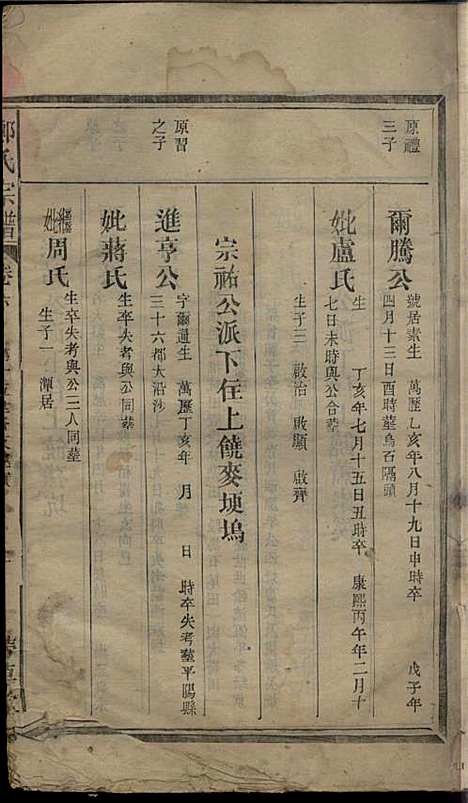 原禮
三子
爾騰公
號居素生 萬歷乙亥年八月十九日申時卒 戊子年
四月十三日酉時塟烏石隔頭
妣盧氏
生 丁亥年七月十五日丑時卒 康熙丙午年二月十
七日未時與公合塟
生子三 啟治 啟顯 啟齊
宗祐公派下住上饒麥埂塢
原習
之子
進亨公
字爾通生 萬歷丁亥年 月 日 時卒失考塟平陽縣
三十六都大沿沙
妣蔣氏
生卒失考與公同塟
繼妣周氏
生卒失考與公二人同塟
生子一 潭居
氏宗譜
卷六